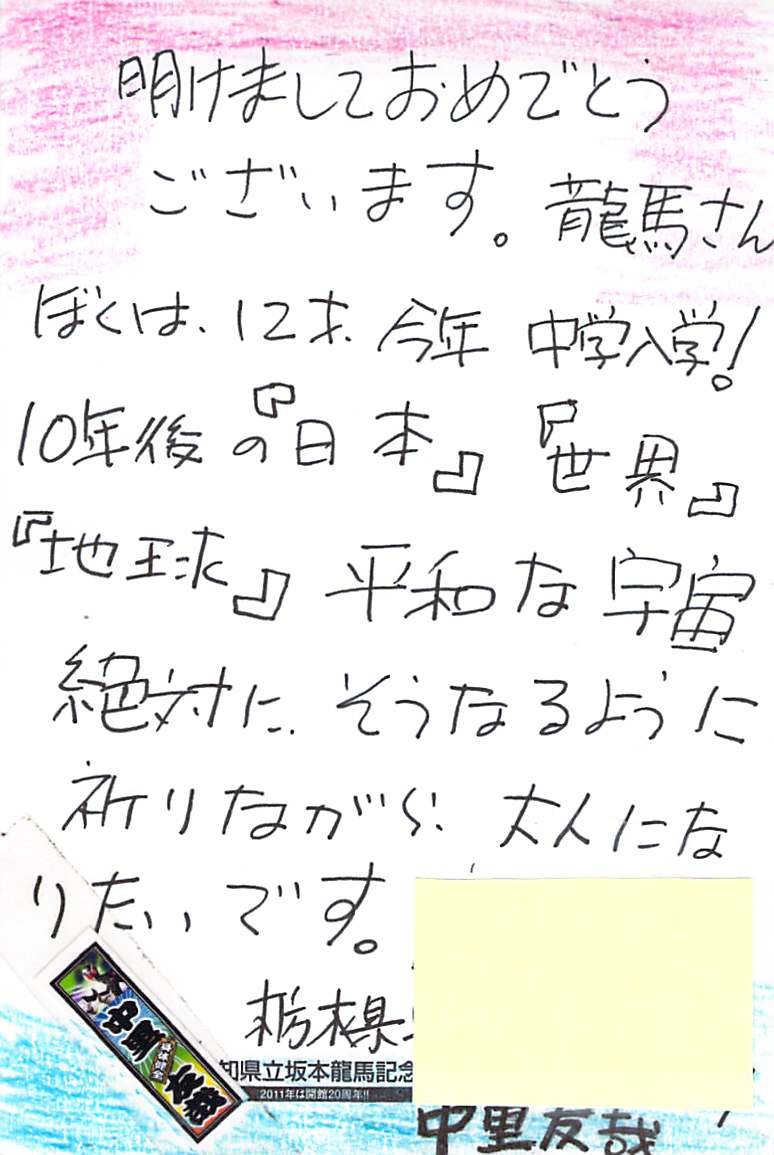 明けましておめでとう
ございます。龍馬さん
ぼくは、12才、今年 中学入学!
10年後の『日本』『世界』
『地球』平和な宇宙
絶対に、そうなるように
祈りながら、大人にな
りたいです。
栃木県
知県立坂本龍馬記念
2011年は開館20周年!!
中里友哉
中里